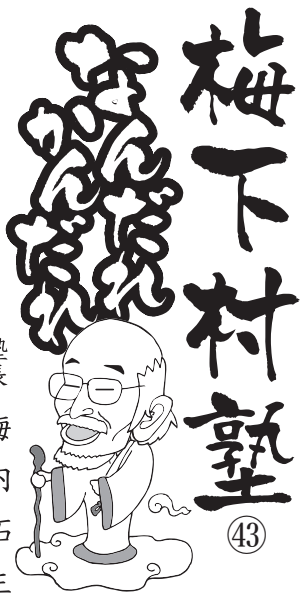 梅下村塾 ㊸
なんだれ
かんだれ
塾長